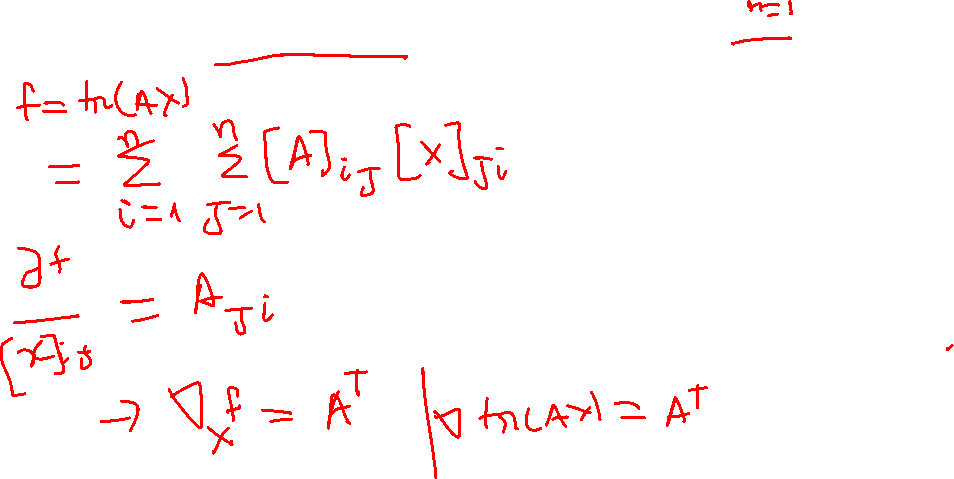 n=1
f = tr(AX)
= n∑i=1 n∑J=1 [A]iJ [X]Ji
∂f / [x]iJ = AJi
→ ∇X f = A^T | ∇ tr(AX) = A^T